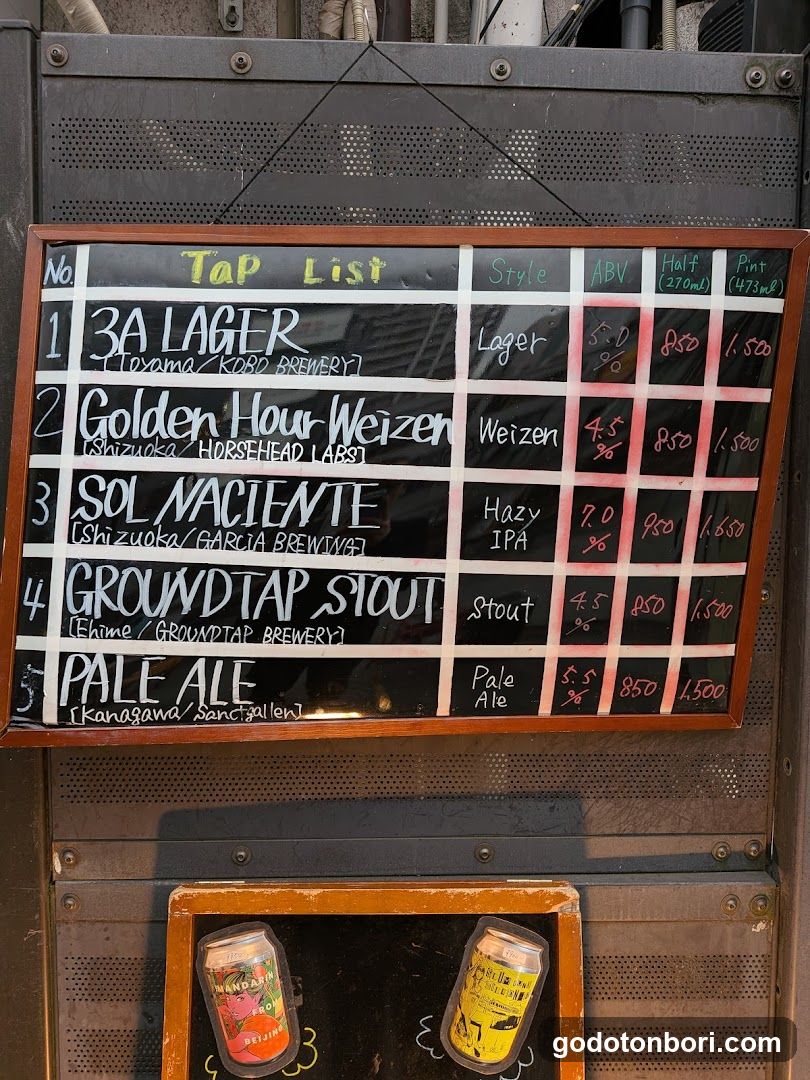 No. Tap List Style ABV Half (270ml) Pint (473ml)
1 3A LAGER Lager 5.0 % 850 1.500
[Toyama/KOBO BREWERY]
2 Golden Hour Weizen Weizen 4.5 % 850 1.500
[Shizuoka/HORSEHEAD LABS]
3 SOL NACIENTE Hazy IPA 7.0 % 950 1.650
[Shizuoka/GARCIA BREWING]
4 GROUNDTAP STOUT Stout 4.5 % 850 1.500
[Ehime/GROUNDTAP BREWERY]
5 PALE ALE Pale Ale 5.5 % 850 1.500
[Kanagawa/Sanctgallen]
MANDARIN
FROM
BEIJING
godotonbori.com